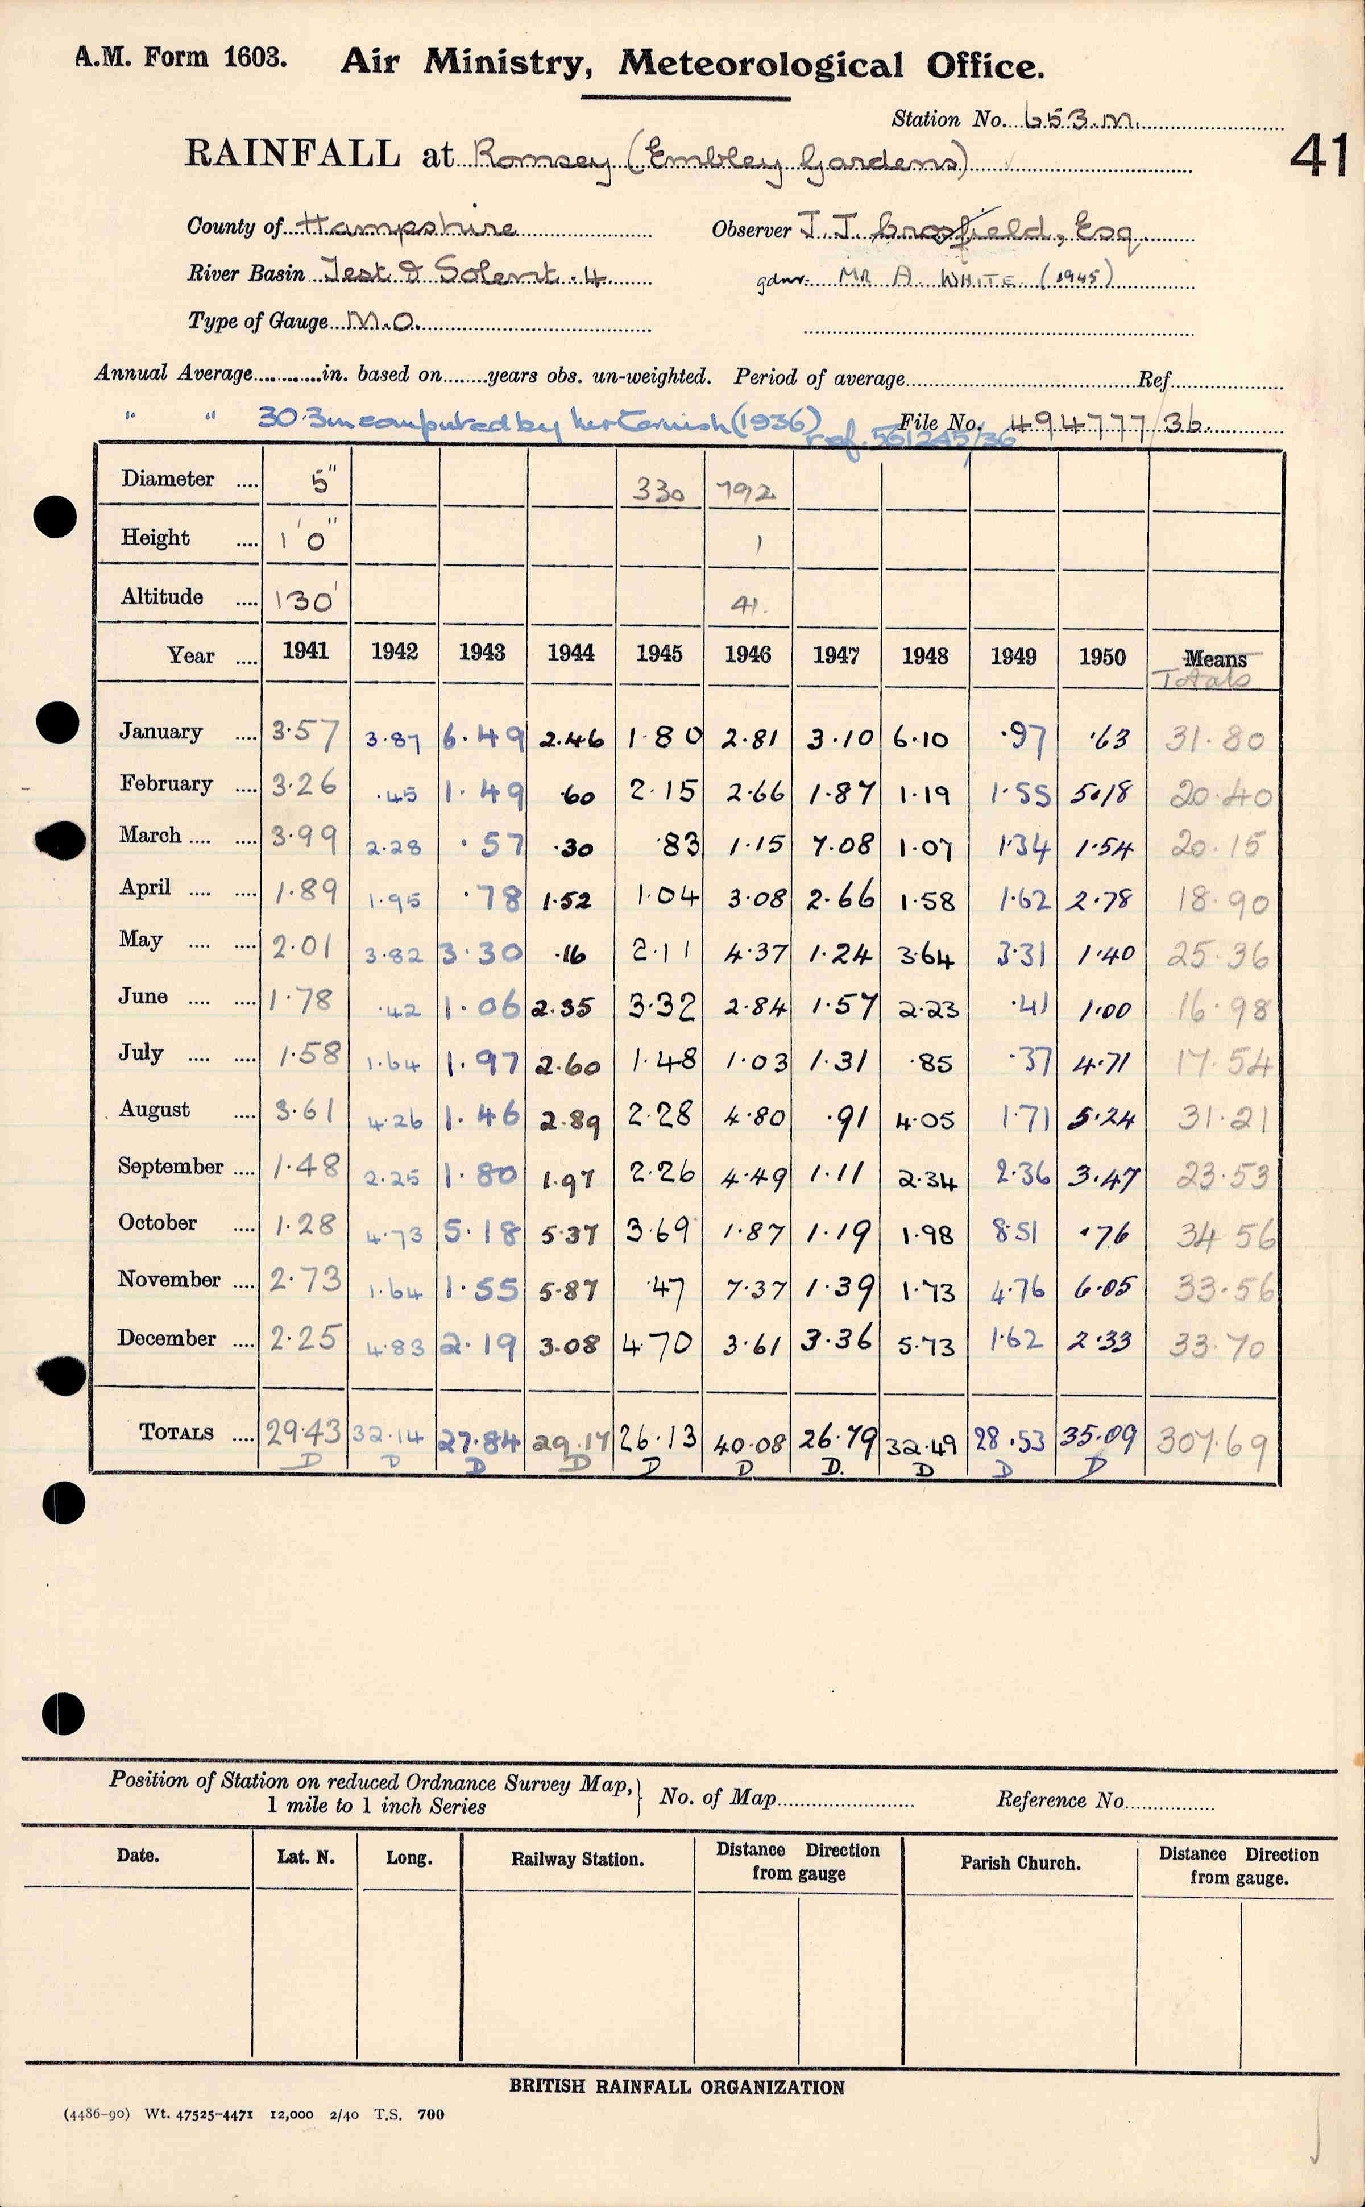 A.M. Form 1603. Air Ministry, Meteorological Office.
Station No. 653.M.
RAINFALL at Romsey (Embley Gardens)
41
County of Hampshire Observer J.J. Crosfield, Esq
River Basin Test & Solent.4. gdnr. MR A. WHITE (1945)
Type of Gauge M.O.
Annual Average............in. based on........years obs. un-weighted. Period of average........Ref........
" " 30.3in computed by (1936) ref. 561245/36 File No. 494777/36
Diameter .... 5" 330 792
Height .... 1'0" 1
Altitude .... 130' 41.
Year .... 1941 1942 1943 1944 1945 1946 1947 1948 1949 1950 Means
Totals
January .... 3.57 3.87 6.49 2.46 1.80 2.81 3.10 6.10 .97 .63 31.80
February .... 3.26 .45 1.49 .60 2.15 2.66 1.87 1.19 1.55 5.18 20.40
March .... .... 3.99 2.28 .57 .30 .83 1.15 7.08 1.07 1.34 1.54 20.15
April .... .... 1.89 1.95 .78 1.52 1.04 3.08 2.66 1.58 1.62 2.78 18.90
May .... .... 2.01 3.82 3.30 .16 2.11 4.37 1.24 3.64 3.31 1.40 25.36
June .... .... 1.78 .42 1.06 2.35 3.32 2.84 1.57 2.23 .41 1.00 16.98
July .... .... 1.58 1.64 1.97 2.60 1.48 1.03 1.31 .85 .37 4.71 17.54
August .... 3.61 4.26 1.46 2.89 2.28 4.80 .91 4.05 1.71 5.24 31.21
September .... 1.48 2.25 1.80 1.97 2.26 4.49 1.11 2.34 2.36 3.47 23.53
October .... 1.28 4.73 5.18 5.37 3.69 1.87 1.19 1.98 8.51 .76 34.56
November .... 2.73 1.64 1.55 5.87 .47 7.37 1.39 1.73 4.76 6.05 33.56
December .... 2.25 4.83 2.19 3.08 4.70 3.61 3.36 5.73 1.62 2.33 33.70
TOTALS .... 29.43 32.14 27.84 29.17 26.13 40.08 26.79 32.49 28.53 35.09 307.69
D D D D D D D. D D D
Position of Station on reduced Ordnance Survey Map,
1 mile to 1 inch Series } No. of Map........ Reference No........
Date. Lat. N. Long. Railway Station. Distance Direction from gauge Parish Church. Distance Direction from gauge.
BRITISH RAINFALL ORGANIZATION
(4486-90) Wt. 47525-4471 12,000 2/40 T.S. 700